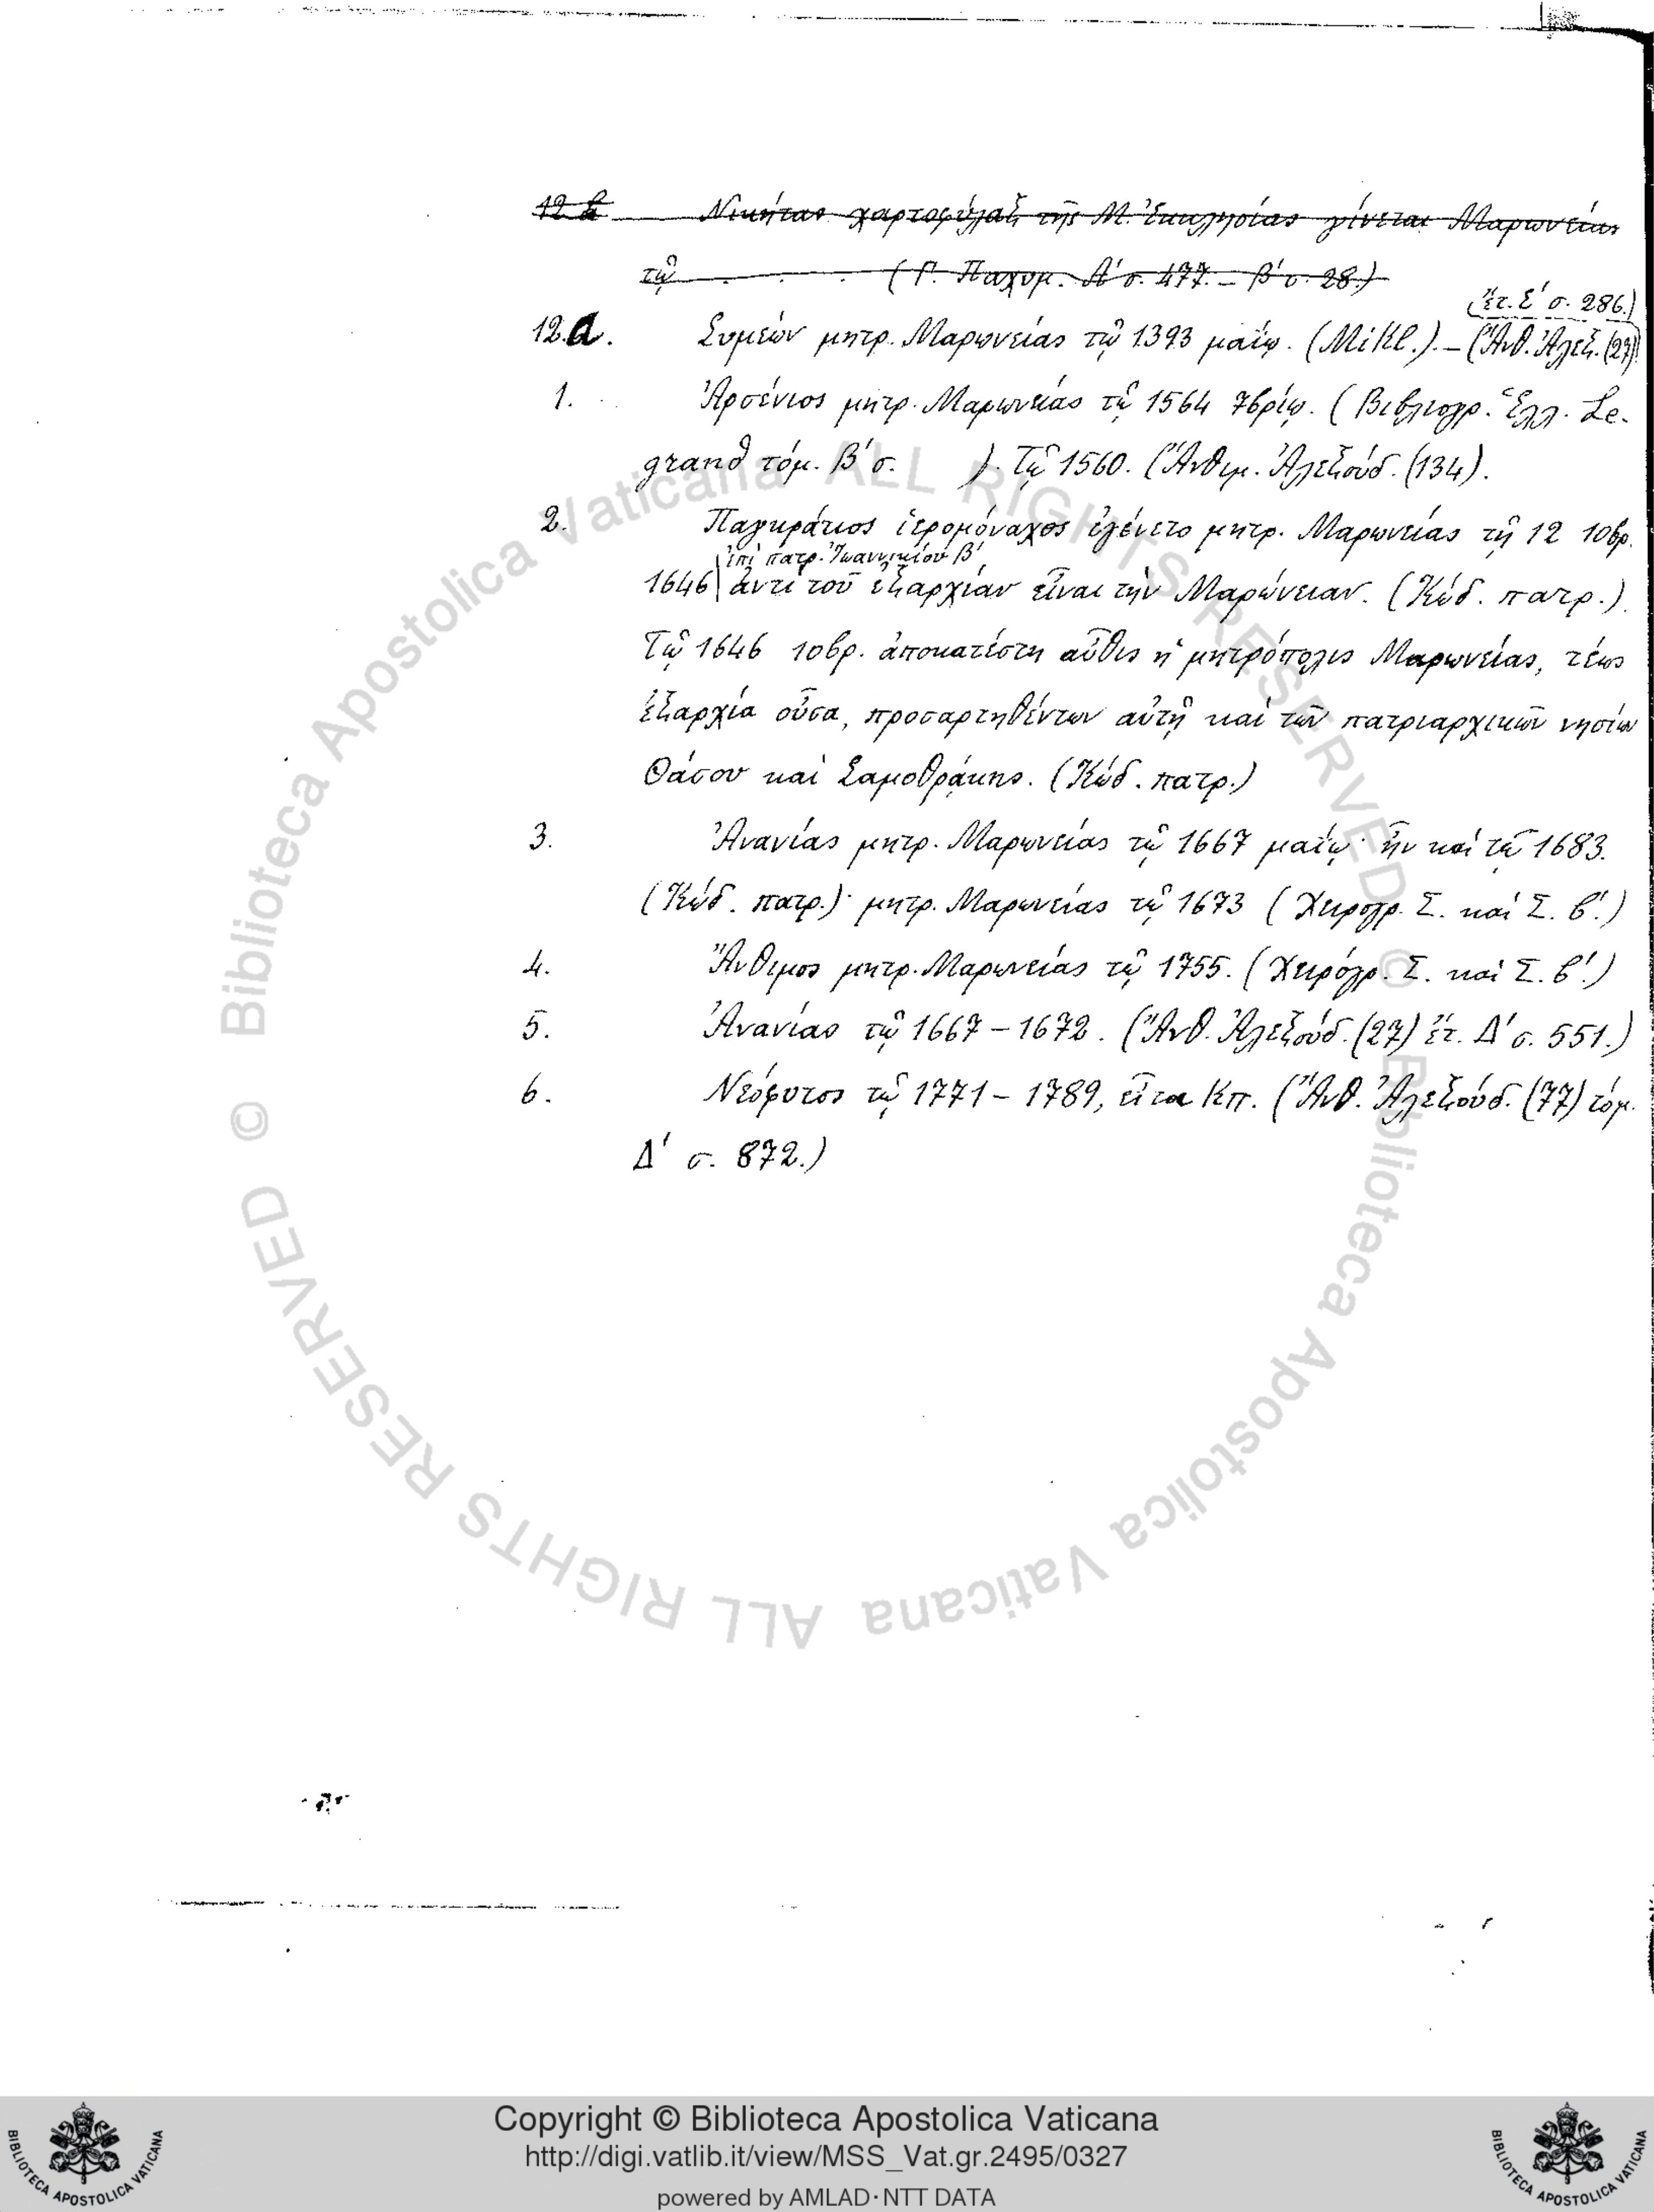 12 b Νικήτας χαρτοφύλαξ τῆς Μ. Ἐκκλησίας γίνεται Μαρωνείας
τῷ . . . (Γ. Παχυμ. Α΄ σ. 477. – β΄ σ. 28.)
(ἔτ. Σ΄ σ. 286.)
12.a. Συμεών μητρ. Μαρωνείας τῷ 1393 μαΐῳ. (Mikl.). – (Ἄνθ. Ἀλεξ. (27)
1. Ἀρσένιος μητρ. Μαρωνείας τῷ 1564 7βρίῳ. (Βιβλιογρ. Ἑλλ. Le-
grand τόμ. β΄ σ. ). Τῷ 1560. (Ἄνθιμ. Ἀλεξούδ. (134).
2. Παγκράτιος ἱερομόναχος ἐγένετο μητρ. Μαρωνείας τῇ 12 10βρ.
ἐπὶ πατρ. Ἰωαννικίου β΄
1646 ἀντί τοῦ ἐξαρχίαν εἶναι τὴν Μαρώνειαν. (Κώδ. πατρ.).
Τῷ 1646 10βρ. ἀποκατέστη αὖθις ἡ μητρόπολις Μαρωνείας, τέως
ἐξαρχία οὖσα, προσαρτηθέντων αὐτῇ καὶ τῶν πατριαρχικῶν νησίων
Θάσου καὶ Σαμοθράκης. (Κώδ. πατρ.)
3. Ἀνανίας μητρ. Μαρωνείας τῷ 1667 μαΐῳ· ἦν καί τῷ 1683.
(Κώδ. πατρ.)· μητρ. Μαρωνείας τῷ 1673 (Χειρογρ. Σ. καί Σ. β΄.)
4. Ἄνθιμος μητρ. Μαρωνείας τῷ 1755. (Χειρόγρ. Σ. καί Σ. β΄.)
5. Ἀνανίας τῷ 1667 – 1672. (Ἄνθ. Ἀλεξούδ. (27) ἔτ. Δ΄ σ. 551.)
6. Νεόφυτος τῷ 1771 – 1789, εἶτα Κπ. (Ἄνθ. Ἀλεξούδ. (77) τόμ.
Δ΄ σ. 872.)
© Biblioteca Apostolica Vaticana ALL RIGHTS RESERVED © Biblioteca Apostolica Vaticana ALL RIGHTS RESERVED
Copyright © Biblioteca Apostolica Vaticana
http://digi.vatlib.it/view/MSS_Vat.gr.2495/0327
powered by AMLAD·NTT DATA
BIBLIOTECA APOSTOLICA VATICANA
BIBLIOTECA APOSTOLICA VATICANA